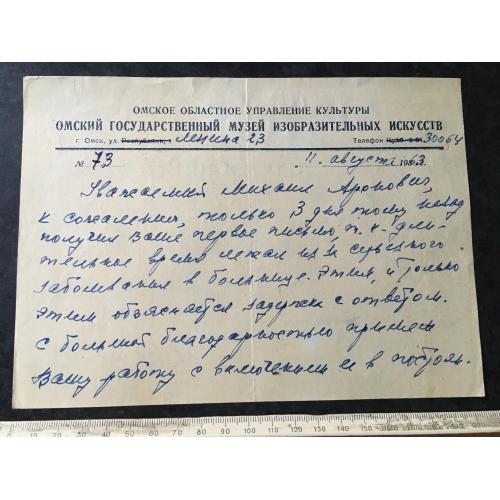 ОМСКОЕ ОБЛАСТНОЕ УПРАВЛЕНИЕ КУЛЬТУРЫ
ОМСКИЙ ГОСУДАРСТВЕННЫЙ МУЗЕЙ ИЗОБРАЗИТЕЛЬНЫХ ИСКУССТВ
г. Омск, ул. Ленина 23 Телефон 30064
№ 73 11 августа 1963.
Уважаемый Михаил Аронович,
к сожалению, только 3 дня тому назад
получил Ваше первое письмо, т. к. дли-
тельное время лежал из-за серьезного
заболевания в больнице. Этим, и только
этим объясняется задержка с ответом.
С большой благодарностью примем
Вашу работу с включением ее в постоян.
0 10 20 30 40 50 60 70 80 90 100 110 120 130 140 150 160 170 180 190 200 210 220 230